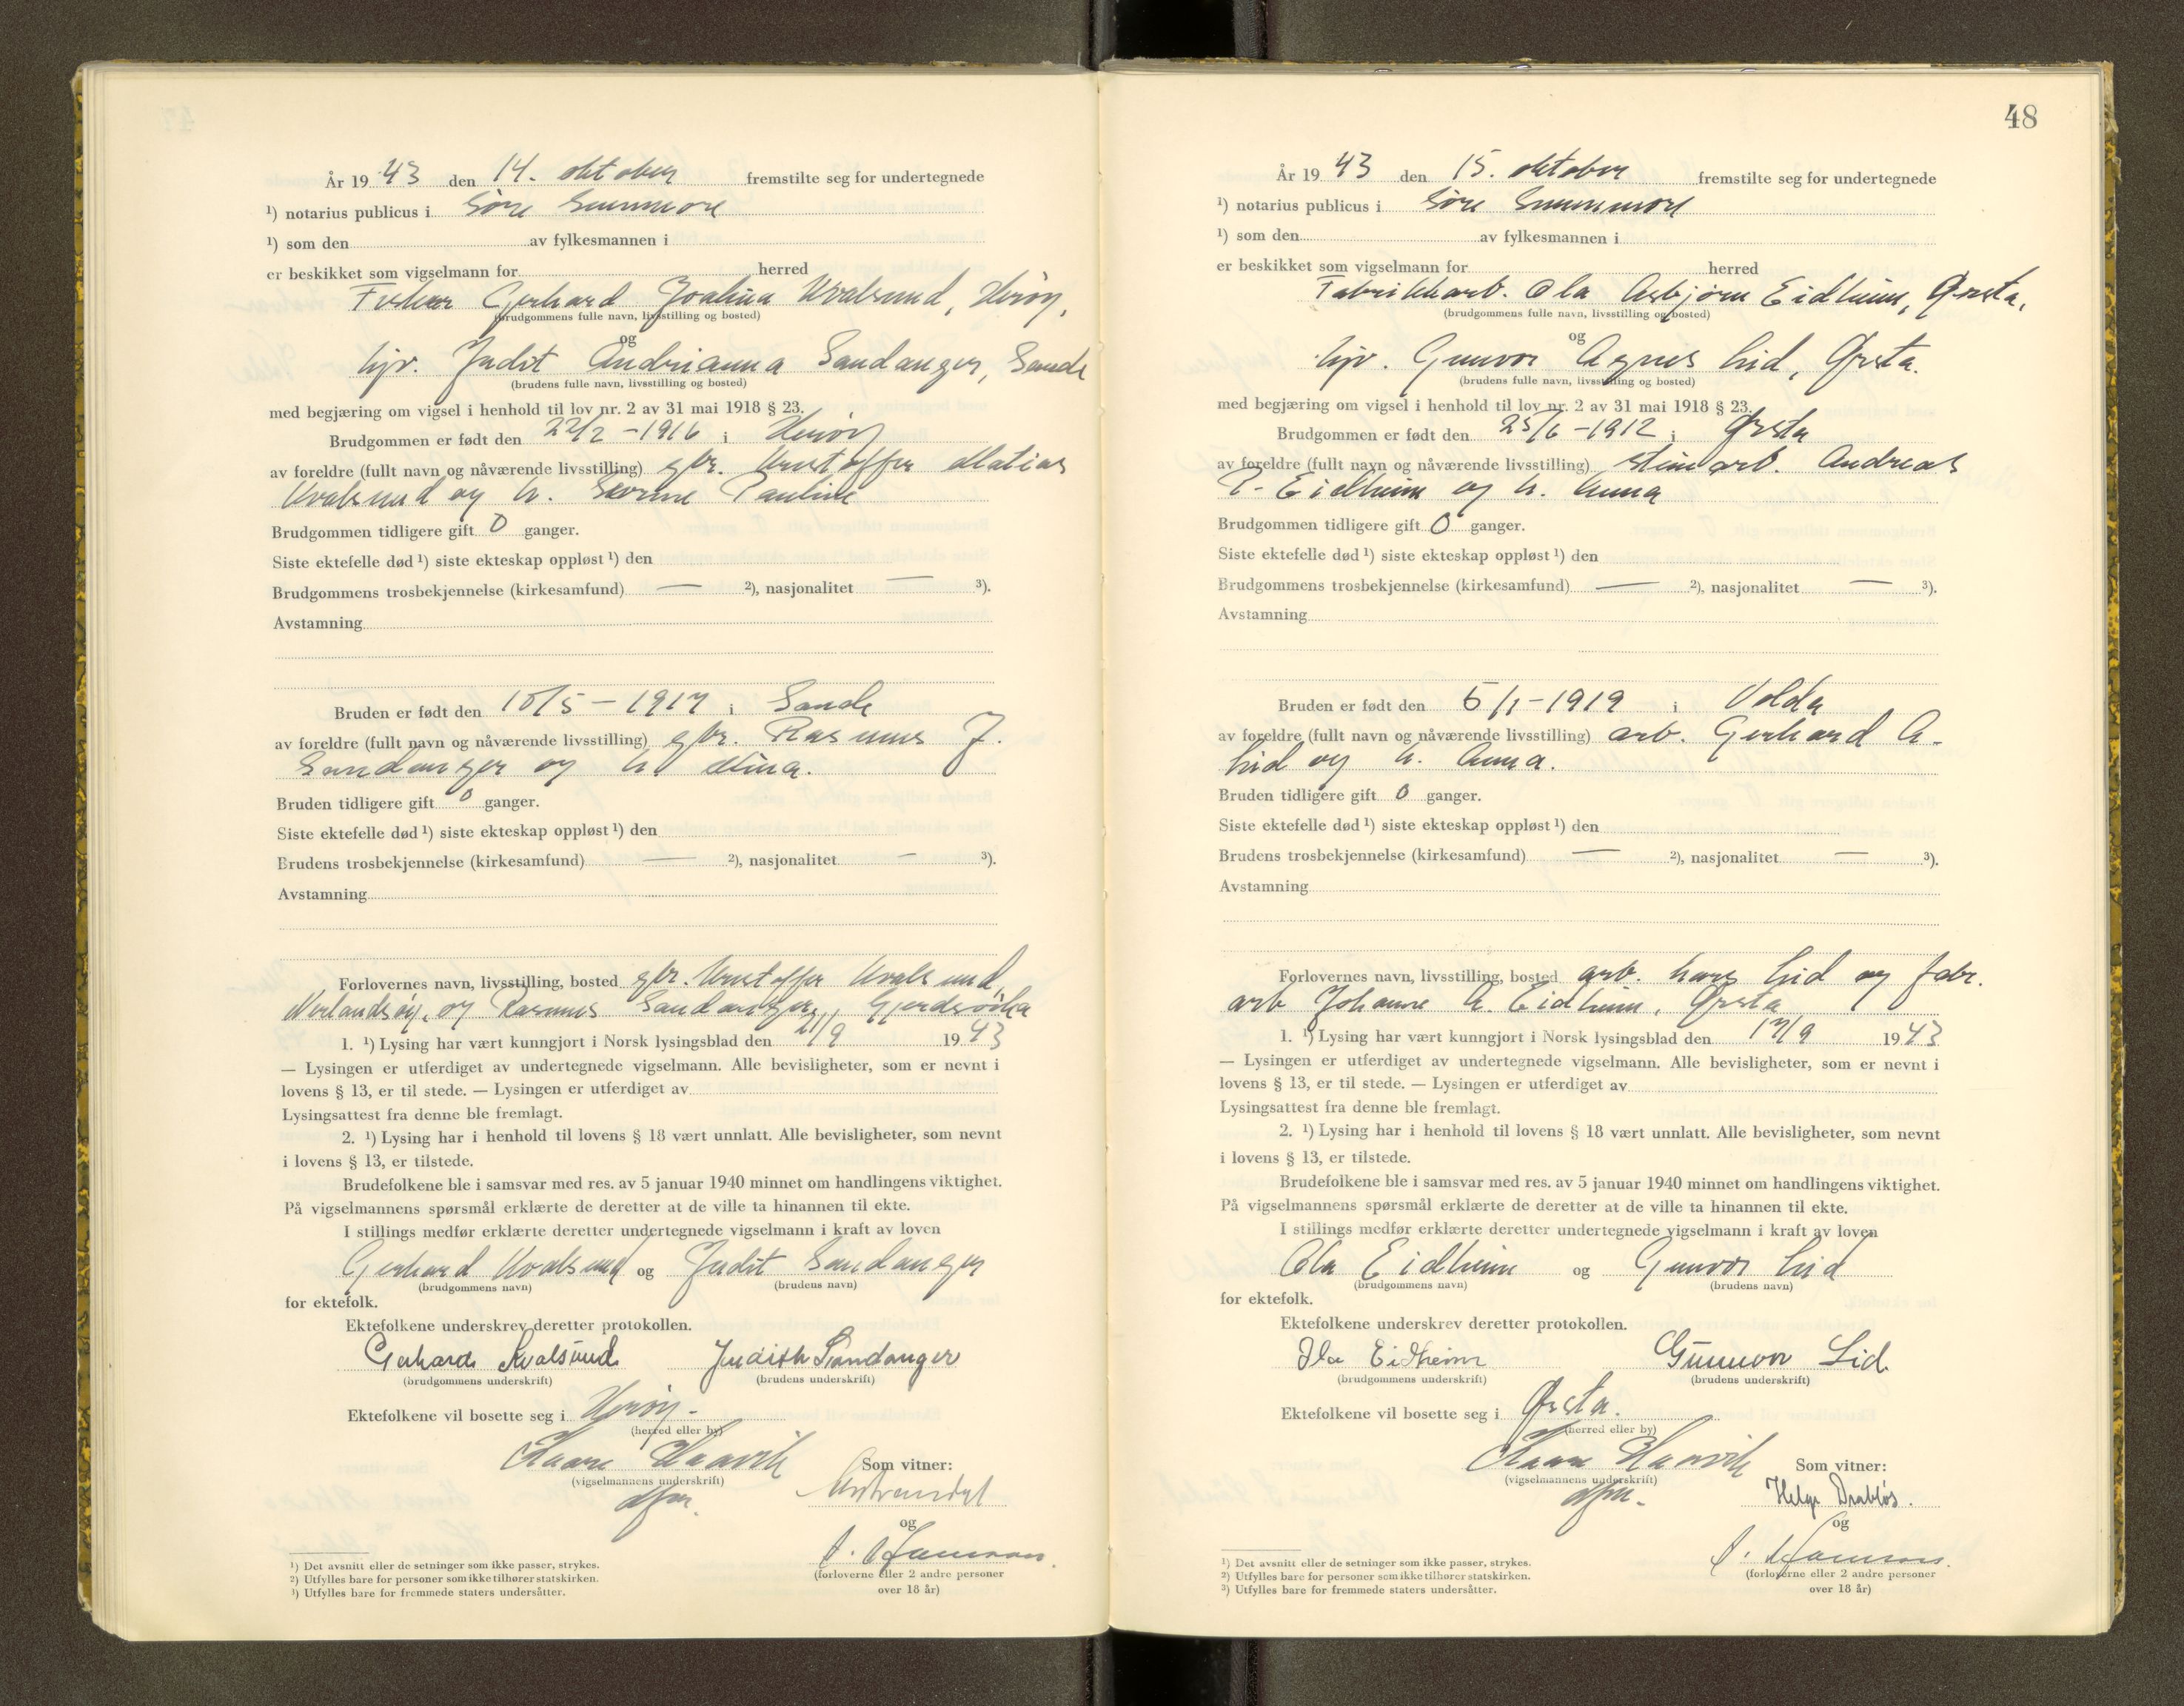 År 19 43 den 14. oktober fremstilte seg for undertegnede
¹) notarius publicus i Søre Sunnmøre
¹) som den av fylkesmannen i
er beskikket som vigselmann for herred
Fisker Gerhard Joakim Kvalsund, Herøy,
(brudgommens fulle navn, livsstilling og bosted)
og
hjv. Judit Andrianna Sandanger, Sande
(brudens fulle navn, livsstilling og bosted)
med begjæring om vigsel i henhold til lov nr. 2 av 31 mai 1918 § 23.
Brudgommen er født den 22/2 - 1916 i Herøy
av foreldre (fullt navn og nåværende livsstilling) gbr. Kristoffer Matias
Kvalsund og h. Pauline
Brudgommen tidligere gift 0 ganger.
Siste ektefelle død ¹) siste ekteskap oppløst ¹) den
Brudgommens trosbekjennelse (kirkesamfund) — ²), nasjonalitet — ³).
Avstamning
Bruden er født den /5 - 1917 i Sande
av foreldre (fullt navn og nåværende livsstilling) gbr. Rasmus J.
Sandanger og h.
Bruden tidligere gift 0 ganger.
Siste ektefelle død ¹) siste ekteskap oppløst ¹) den
Brudens trosbekjennelse (kirkesamfund) — ²), nasjonalitet — ³).
Avstamning
Forlovernes navn, livsstilling, bosted gbr. Kristoffer Kvalsund,
og Rasmus Sandanger, Gjerdsvika
1. ¹) Lysing har vært kunngjort i Norsk lysingsblad den 21/9 19 43
— Lysingen er utferdiget av undertegnede vigselmann. Alle bevisligheter, som er nevnt i
lovens § 13, er til stede. — Lysingen er utferdiget av
Lysingsattest fra denne ble fremlagt.
2. ¹) Lysing har i henhold til lovens § 18 vært unnlatt. Alle bevisligheter, som nevnt
i lovens § 13, er tilstede.
Brudefolkene ble i samsvar med res. av 5 januar 1940 minnet om handlingens viktighet.
På vigselmannens spørsmål erklærte de deretter at de ville ta hinannen til ekte.
I stillings medfør erklærte deretter undertegnede vigselmann i kraft av loven
Gerhard Kvalsund og Judit Sandanger
(brudgommens navn) (brudens navn)
for ektefolk.
Ektefolkene underskrev deretter protokollen.
Gerhard Kvalsund Judith Sandanger
(brudgommens underskrift) (brudens underskrift)
Ektefolkene vil bosette seg i Herøy -
(herred eller by)
Kaare Haavik
(vigselmannens underskrift)
dfm.
Som vitner:
og
(forloverne eller 2 andre personer
over 18 år)
¹) Det avsnitt eller de setninger som ikke passer, strykes.
²) Utfylles bare for personer som ikke tilhører statskirken.
³) Utfylles bare for fremmede staters undersåtter.
48
År 19 43 den 15. oktober fremstilte seg for undertegnede
¹) notarius publicus i Søre Sunnmøre
¹) som den av fylkesmannen i
er beskikket som vigselmann for herred
Fabrikkarb. Ola Asbjørn Eidheim, Ørsta,
(brudgommens fulle navn, livsstilling og bosted)
og
hjv. Gunvor Agnes Lid, Ørsta.
(brudens fulle navn, livsstilling og bosted)
med begjæring om vigsel i henhold til lov nr. 2 av 31 mai 1918 § 23.
Brudgommen er født den 25/6 - 1912 i Ørsta
av foreldre (fullt navn og nåværende livsstilling) steinarb. Andreas
Eidheim og h. Anna
Brudgommen tidligere gift 0 ganger.
Siste ektefelle død ¹) siste ekteskap oppløst ¹) den
Brudgommens trosbekjennelse (kirkesamfund) — ²), nasjonalitet — ³).
Avstamning
Bruden er født den 5/1 - 1919 i Volda
av foreldre (fullt navn og nåværende livsstilling) arb. Gerhard A.
Lid og h. Anna.
Bruden tidligere gift 0 ganger.
Siste ektefelle død ¹) siste ekteskap oppløst ¹) den
Brudens trosbekjennelse (kirkesamfund) — ²), nasjonalitet — ³).
Avstamning
Forlovernes navn, livsstilling, bosted arb. Lars Lid og fabr.
arb Johanne A. Eidheim, Ørsta
1. ¹) Lysing har vært kunngjort i Norsk lysingsblad den 17/9 19 43
— Lysingen er utferdiget av undertegnede vigselmann. Alle bevisligheter, som er nevnt i
lovens § 13, er til stede. — Lysingen er utferdiget av
Lysingsattest fra denne ble fremlagt.
2. ¹) Lysing har i henhold til lovens § 18 vært unnlatt. Alle bevisligheter, som nevnt
i lovens § 13, er tilstede.
Brudefolkene ble i samsvar med res. av 5 januar 1940 minnet om handlingens viktighet.
På vigselmannens spørsmål erklærte de deretter at de ville ta hinannen til ekte.
I stillings medfør erklærte deretter undertegnede vigselmann i kraft av loven
Ola Eidheim og Gunvor Lid
(brudgommens navn) (brudens navn)
for ektefolk.
Ektefolkene underskrev deretter protokollen.
Ola Eidheim Gunnvor Lid
(brudgommens underskrift) (brudens underskrift)
Ektefolkene vil bosette seg i Ørsta.
(herred eller by)
Kaare Haavik
(vigselmannens underskrift)
dfm.
Som vitner:
Helge Drabløs.
og
(forloverne eller 2 andre personer
over 18 år)
¹) Det avsnitt eller de setninger som ikke passer, strykes.
²) Utfylles bare for personer som ikke tilhører statskirken.
³) Utfylles bare for fremmede staters undersåtter.